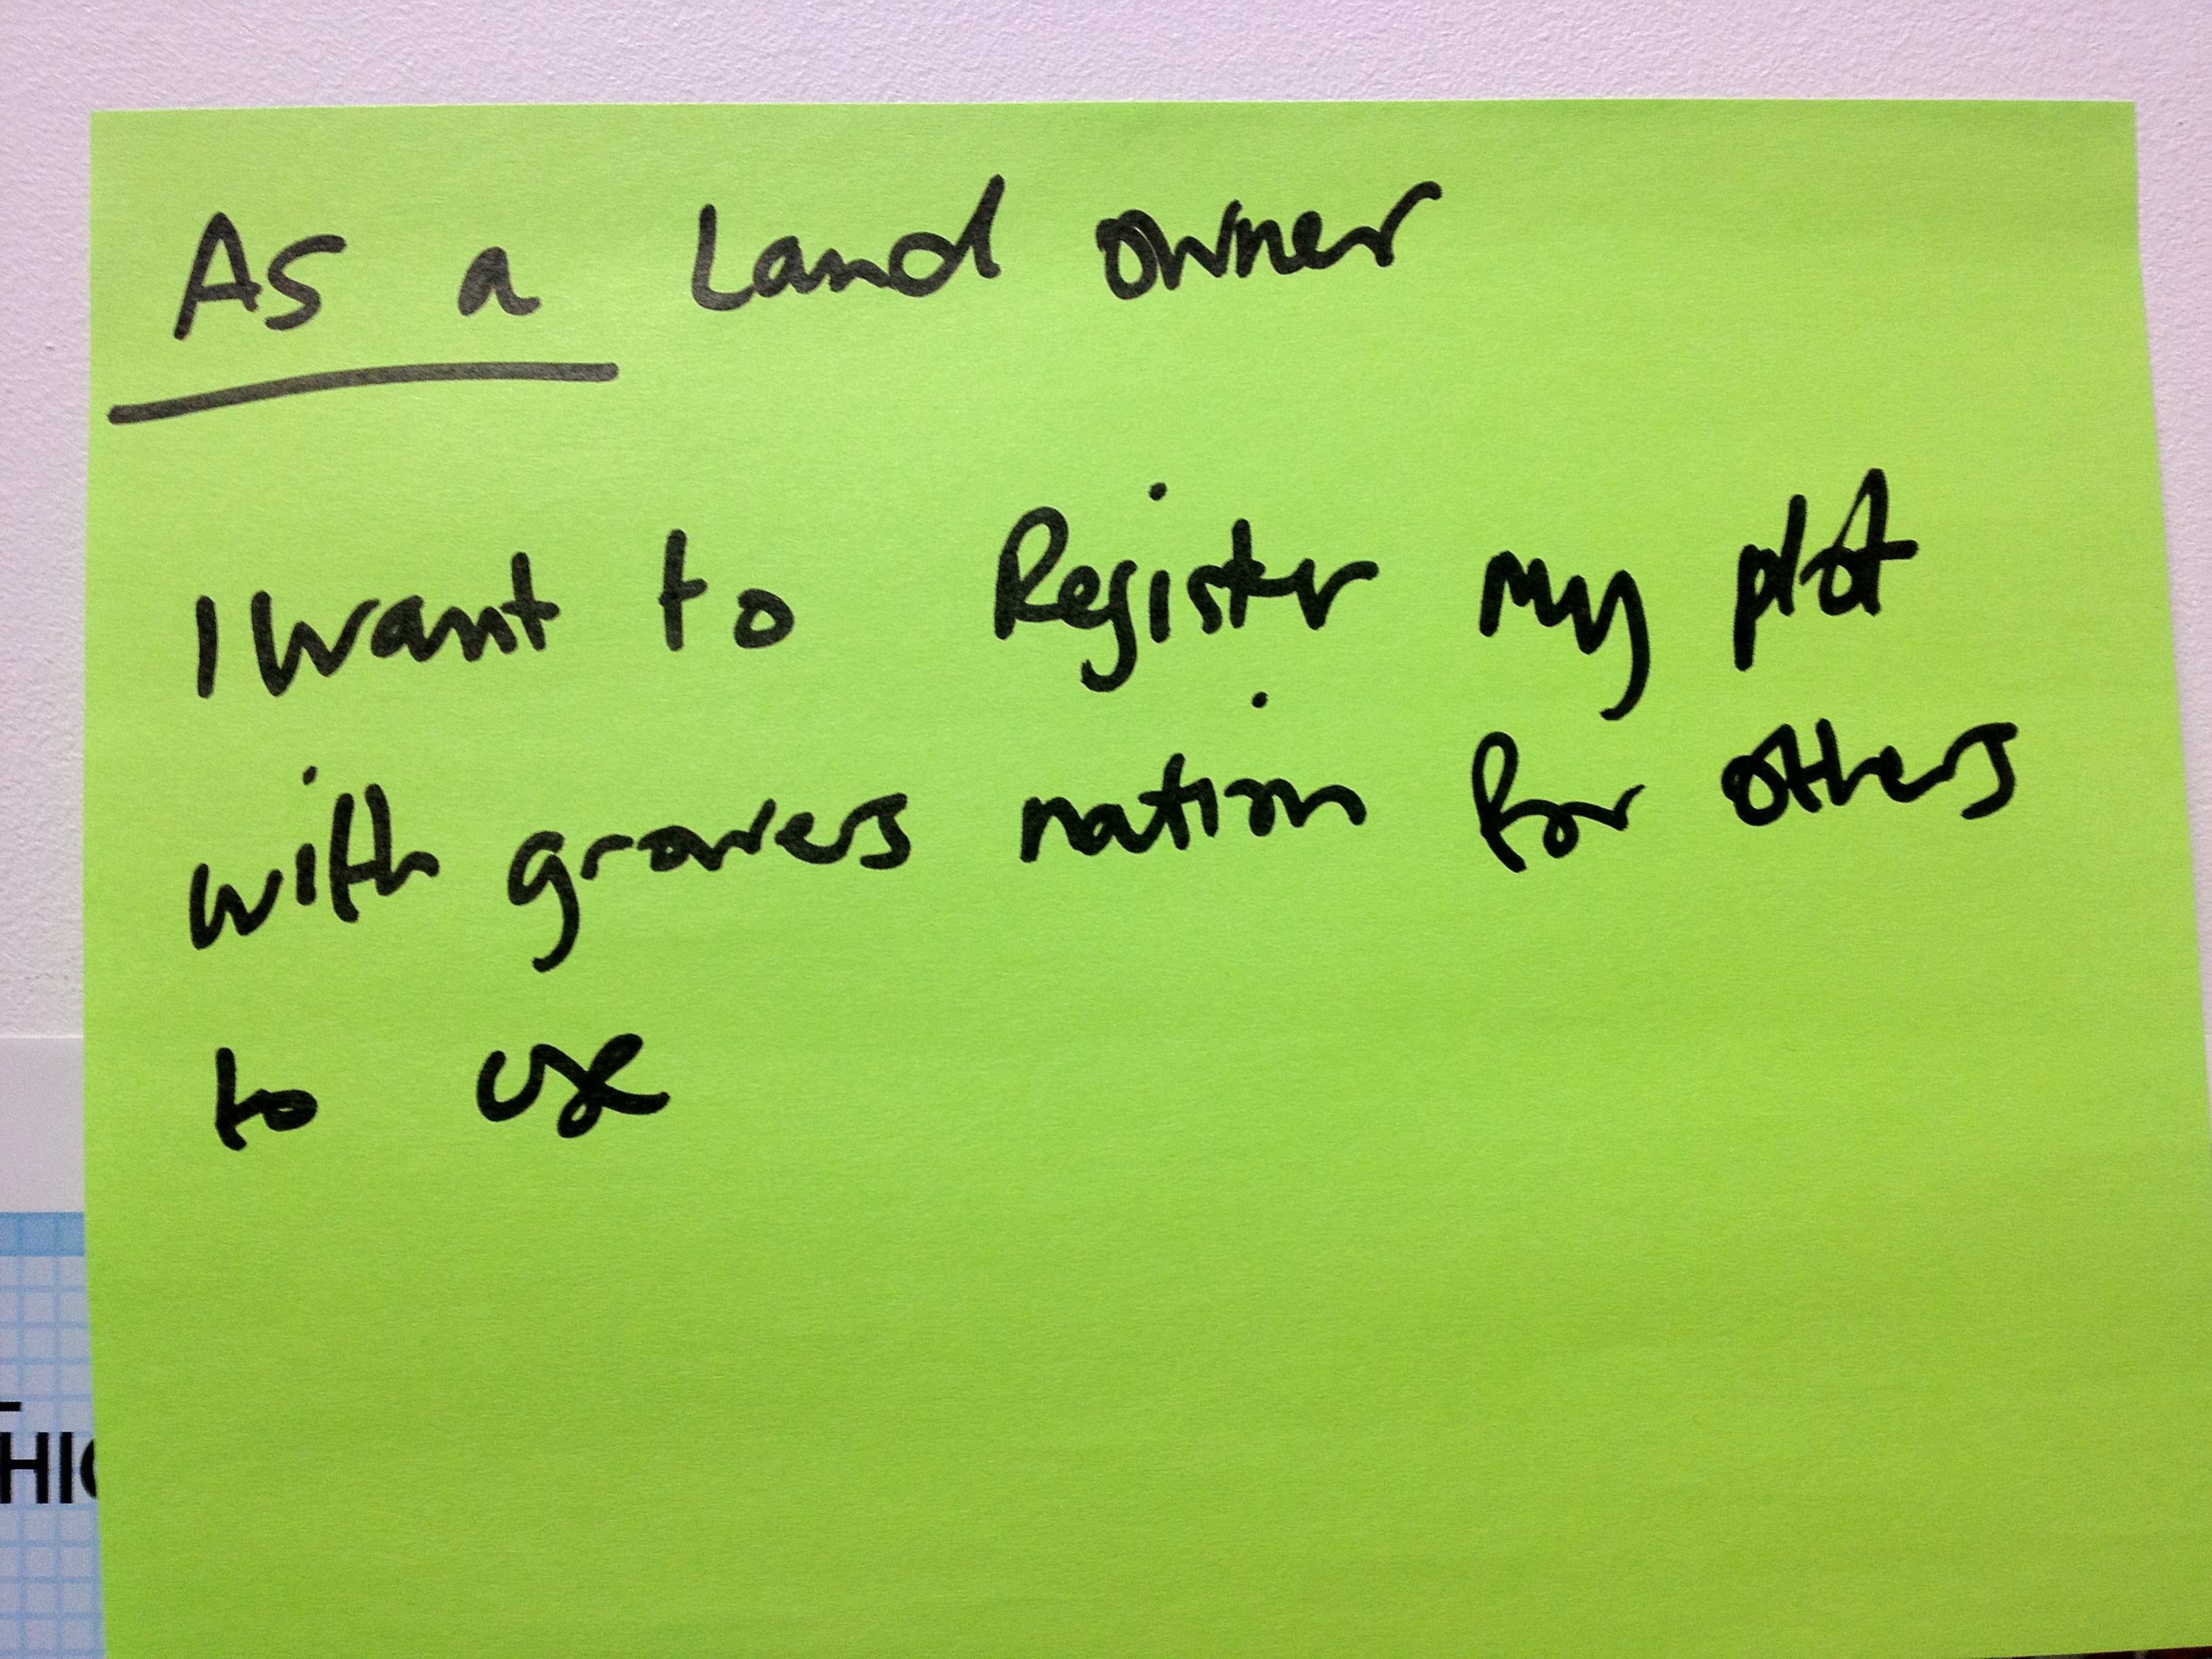 As a Land owner
I want to Register my plot
with growers nation for others
to use
HIC